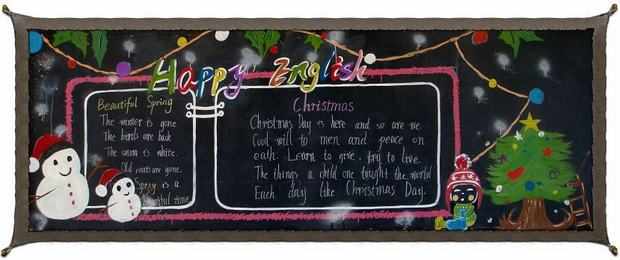 Happy English
Beautiful Spring
The winter is gone
The birds are back
The is white.
Old coats are gone.
Spring is a
tiful time
Christmas
Christmas Day is here and so are we
Good will to men and peace on
eath. Learn to give, try to live.
The things a child one taught the world
Each day like Christmas Day.